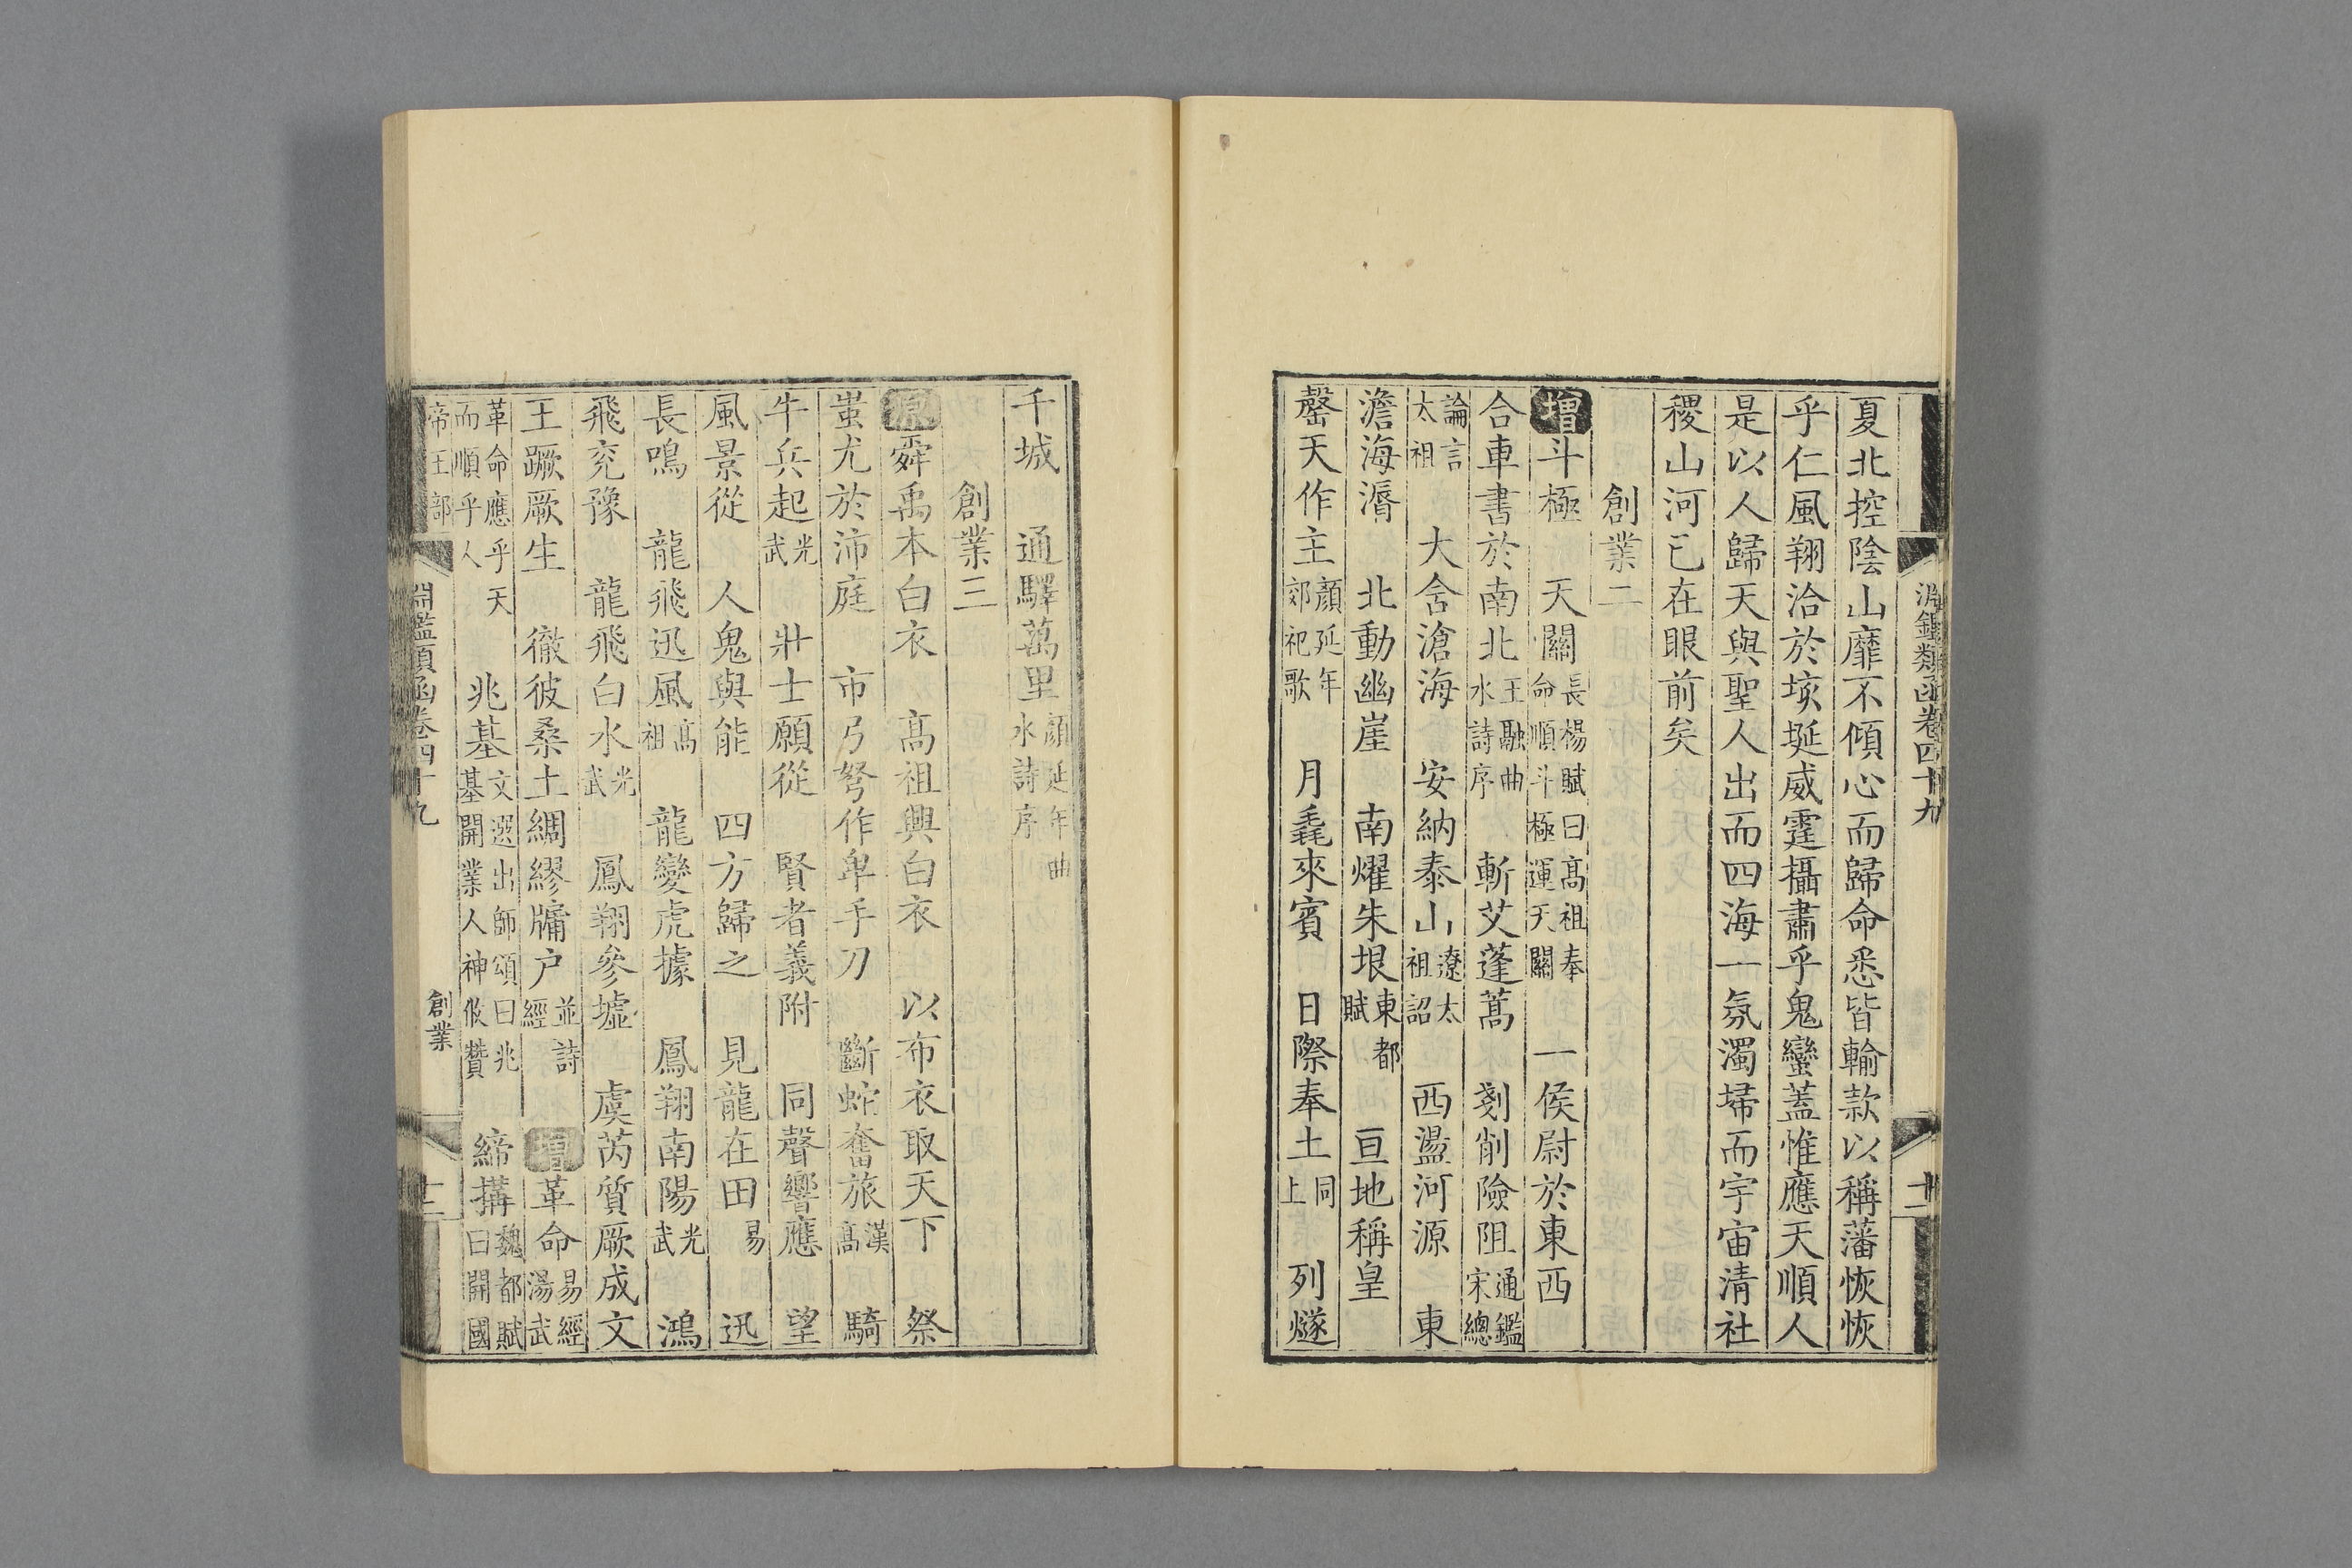 淵鑑類函卷四十九
十二
夏北控陰山靡不傾心而歸命悉皆輸款以稱藩恢恢
乎仁風翔洽於垓埏威霆攝肅乎鬼蠻蓋惟應天順人
是以人歸天與聖人出而四海一氛濁埽而宇宙淸社
稷山河已在眼前矣
創業二
增斗極 天關長楊賦曰高祖奉命順斗極運天關 一侯尉於東西
合車書於南北王融曲水詩序 斬艾蓬蒿 剗削險阻通鑑宋總
論言太祖 大舍滄海 安納泰山遼太祖詔 西盪河源 東
澹海漘 北動幽崖 南燿朱垠東都賦 亘地稱皇
罄天作主顏延年郊祀歌 月毳來賓 日際奉土同上 列燧
千城 通驛萬里顏延年曲水詩序
創業三
原舜禹本白衣 高祖興白衣 以布衣取天下 祭
蚩尤於沛庭 市弓弩作卑手刀 斷蛇奮旅漢高 騎
牛兵起光武 壯士願從 賢者義附 同聲響應 望
風景從 人鬼與能 四方歸之 見龍在田易 迅
長鳴 龍飛迅風高祖 龍變虎據 鳳翔南陽光武 鴻
飛兖豫 龍飛白水光武 鳳翔參墟 虞芮質厥成文
王蹶厥生 徹彼桑土綢繆牖户並詩經 增革命易經湯武
革命應乎天而順乎人 兆基文選出師頌曰兆基開業人神攸贊 締搆魏都賦曰開國
帝王部
淵鑑類函卷四十九
創業
十二